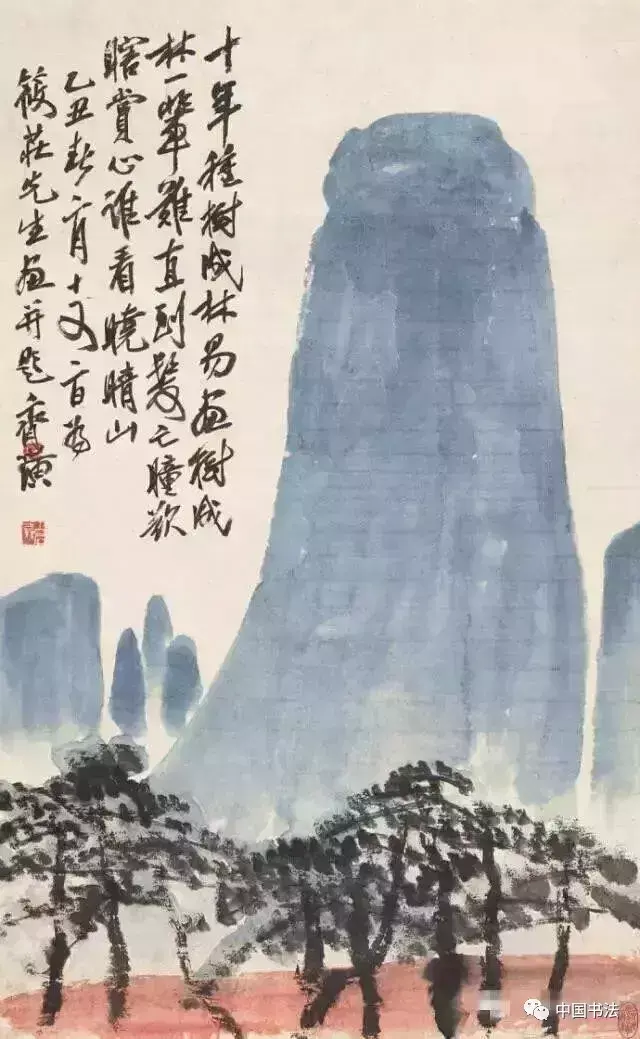 十年種樹成林易画樹成
林一輩難直到髮亡瞳欲
瞎賞心誰看曉晴山
乙丑春二月十又二日為
筱莊先生画并題齊璜
中国书法